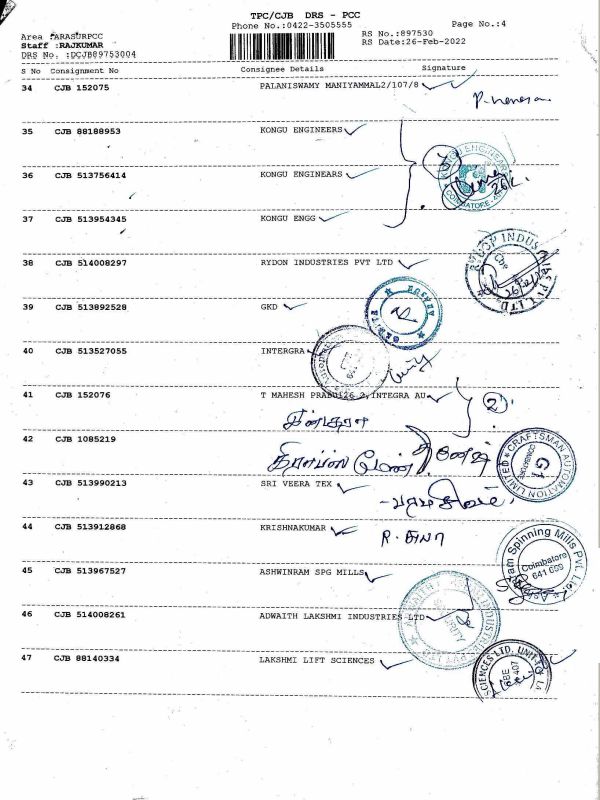 TPC/CJB DRS - PCC
Phone No.:0422-3505555
Page No.:4
Area :ARASURPCC
RS No.:897530
Staff :RAJKUMAR
RS Date:26-Feb-2022
DRS No. :DCJB89753004
S No Consignment No Consignee Details Signature
34 CJB 152075 PALANISWAMY MANIYAMMAL2/107/8
35 CJB 88188953 KONGU ENGINEERS
36 CJB 513756414 KONGU ENGINEARS
37 CJB 513954345 KONGU ENGG
38 CJB 514008297 RYDON INDUSTRIES PVT LTD
39 CJB 513892528 GKD
40 CJB 513527055 INTERGRA
41 CJB 152076 T MAHESH PRABU126 2,INTEGRA AU
2
42 CJB 1085219
CRAFTSMAN AUTOMATION LIMITED
43 CJB 513990213 SRI VEERA TEX
44 CJB 513912868 KRISHNAKUMAR
R. சுபா
Spinning Mills Pvt. Ltd.
Coimbatore
641 659
45 CJB 513967527 ASHWINRAM SPG MILLS
46 CJB 514008261 ADWAITH LAKSHMI INDUSTRIES LTD
47 CJB 88140334 LAKSHMI LIFT SCIENCES